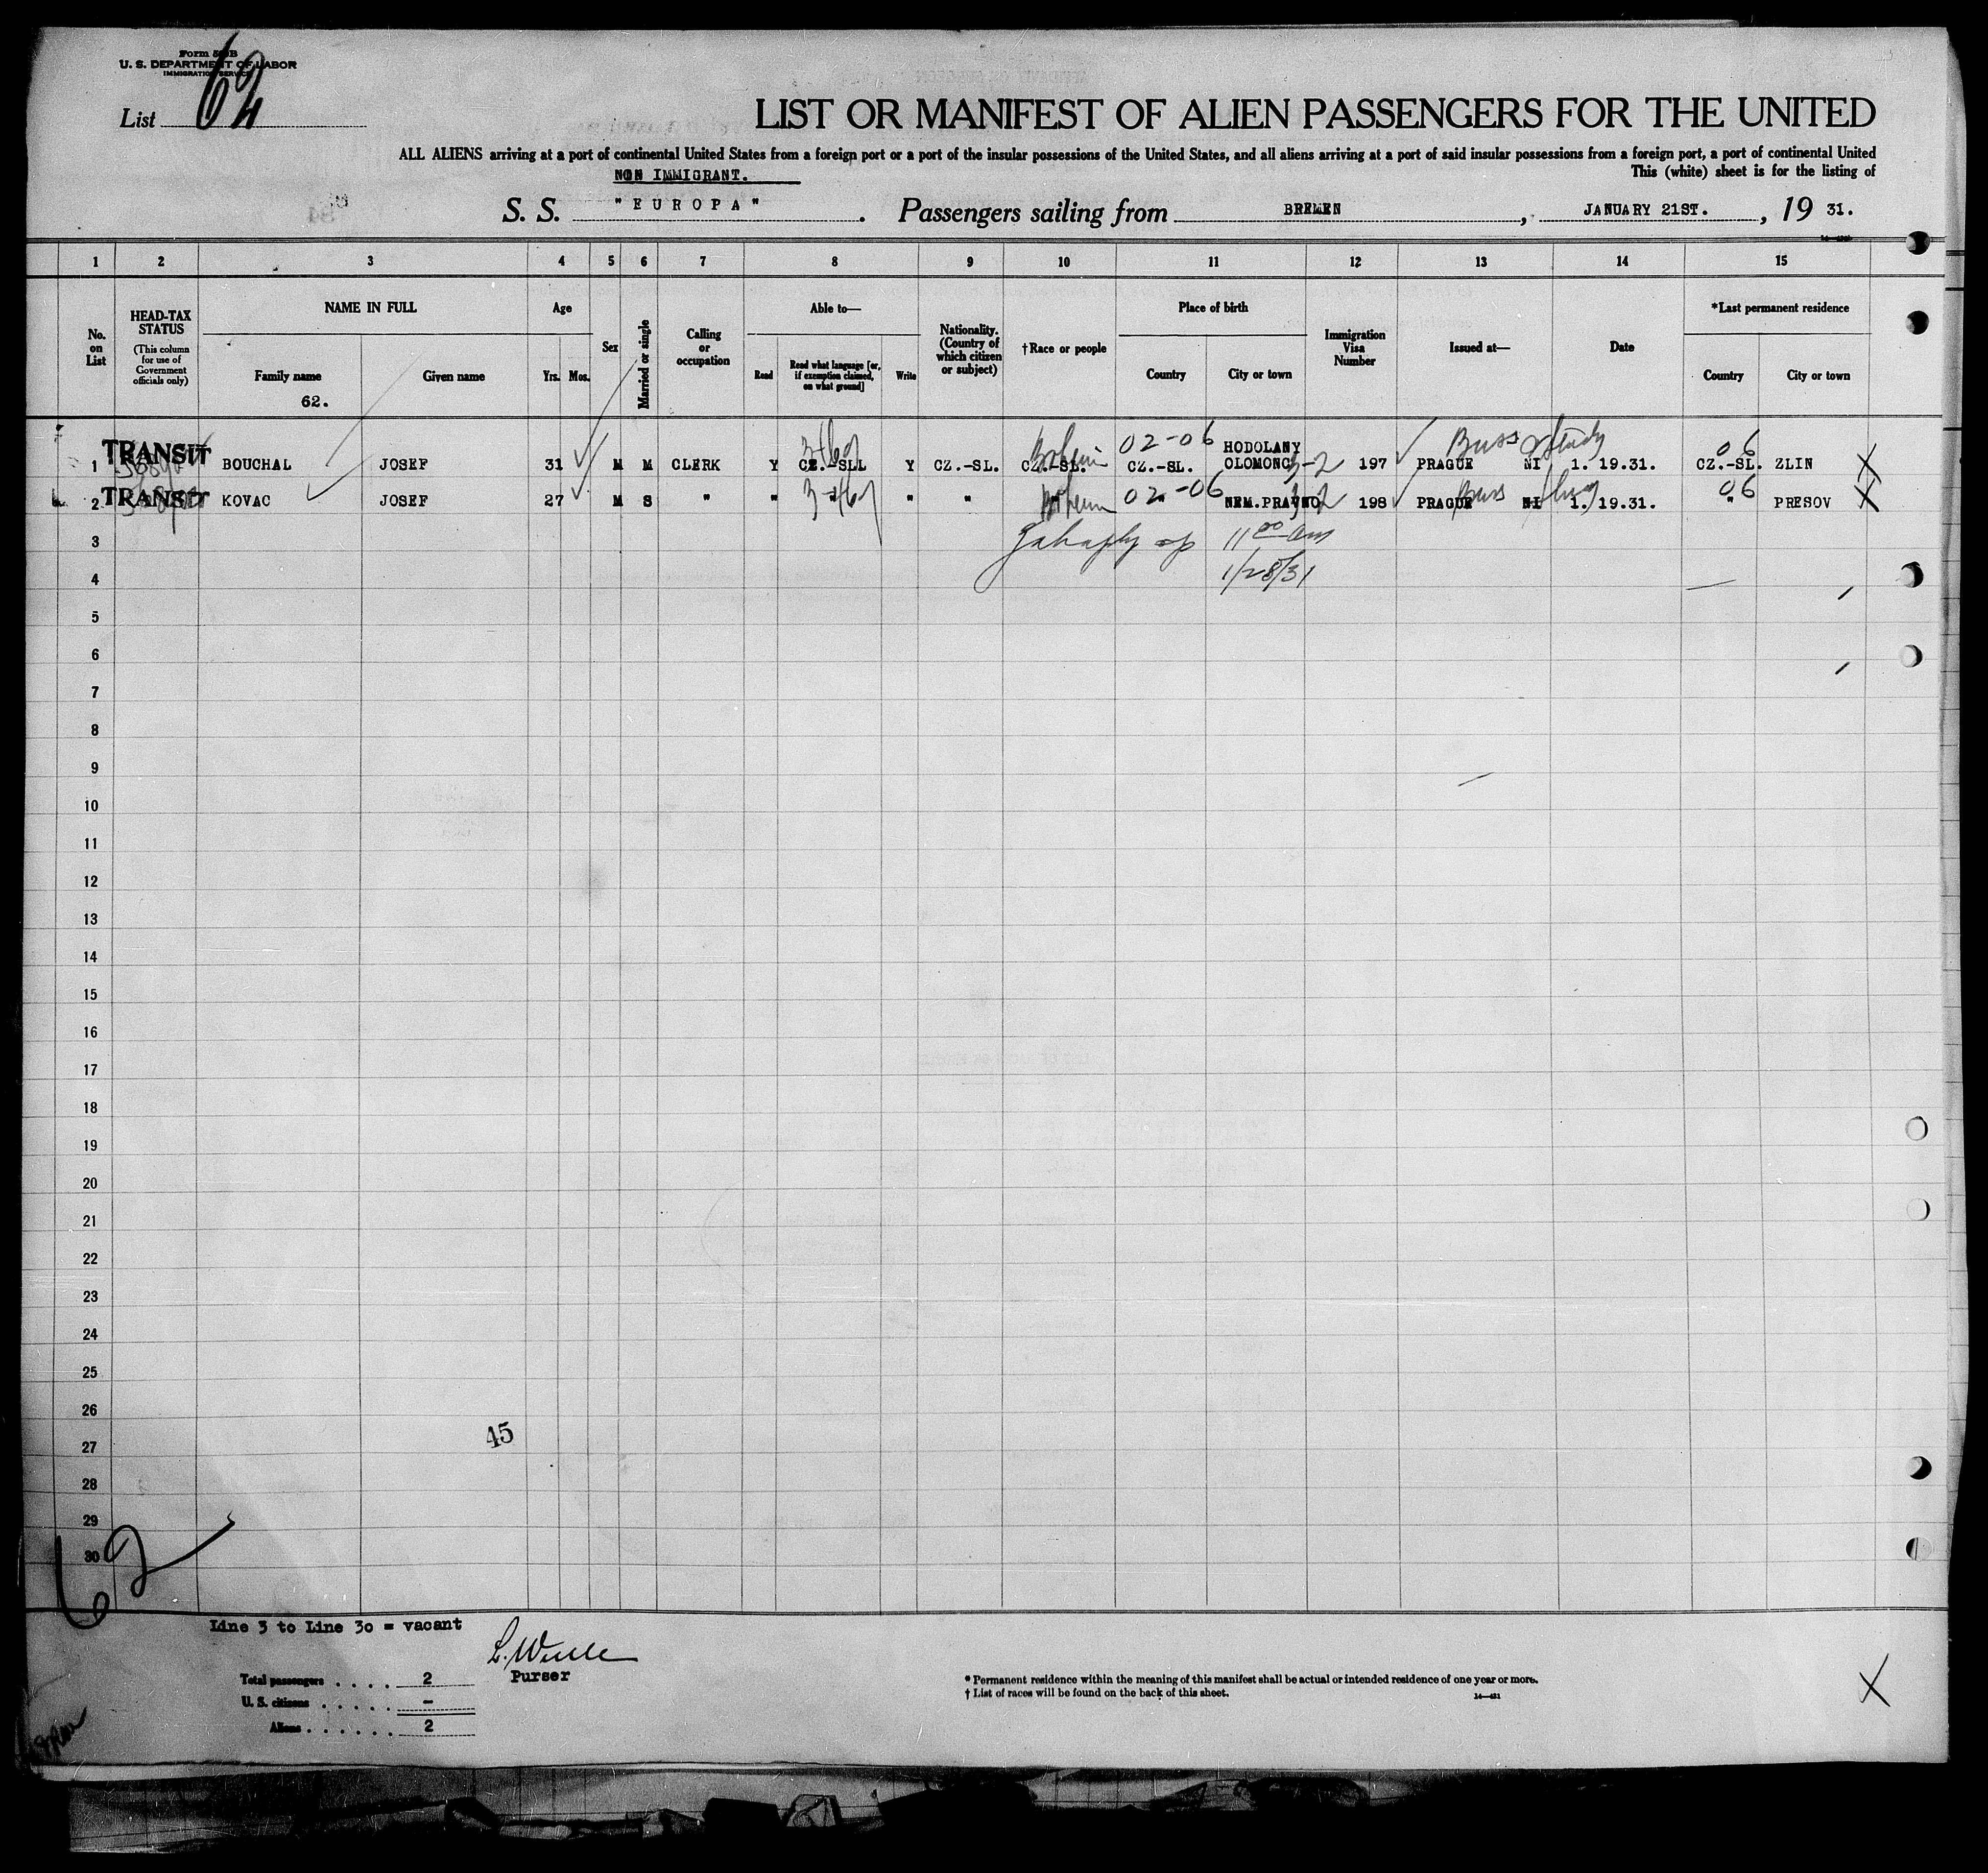 Form 500B
U. S. DEPARTMENT OF LABOR
IMMIGRATION SERVICE
List 62
LIST OR MANIFEST OF ALIEN PASSENGERS FOR THE UNITED
ALL ALIENS arriving at a port of continental United States from a foreign port or a port of the insular possessions of the United States, and all aliens arriving at a port of said insular possessions from a foreign port, a port of continental United
NON IMMIGRANT.
This (white) sheet is for the listing of
S. S. "EUROPA" . Passengers sailing from BREMEN , JANUARY 21ST. , 19 31.
1 2 3 4 5 6 7 8 9 10 11 12 13 14 15
No. on List
HEAD-TAX STATUS
(This column for use of Government officials only)
NAME IN FULL
Family name
Given name
62.
Age
Yrs. Mos.
Sex
Married or single
Calling or occupation
Able to—
Read
Read what language [or, if exemption claimed, on what ground]
Write
Nationality. (Country of which citizen or subject)
†Race or people
Place of birth
Country
City or town
Immigration Visa Number
Issued at—
Date
*Last permanent residence
Country
City or town
02-06 HODOLANY Buss 06
1 TRANSIT BOUCHAL JOSEF 31 M M CLERK Y CZ.-SLL Y CZ.-SL. CZ.-SL. CZ.-SL. OLOMONC 3-2 197 PRAGUE NI 1. 19.31. CZ.-SL. ZLIN X
02-06 06
2 TRANSIT KOVAC JOSEF 27 M S " " " " " NEM.PRAVNO 198 PRAGUE NI 1. 19.31. " PRESOV X
3 11 00 am
4 1/28/31
5
6
7
8
9
10
11
12
13
14
15
16
17
18
19
20
21
22
23
24
25
26
45
27
28
29
30
62
Line 3 to Line 30 = vacant
Purser
Total passengers . . . . 2
U. S. citizens . . . . . –
Aliens . . . . . . 2
* Permanent residence within the meaning of this manifest shall be actual or intended residence of one year or more.
† List of races will be found on the back of this sheet.
14—421
X